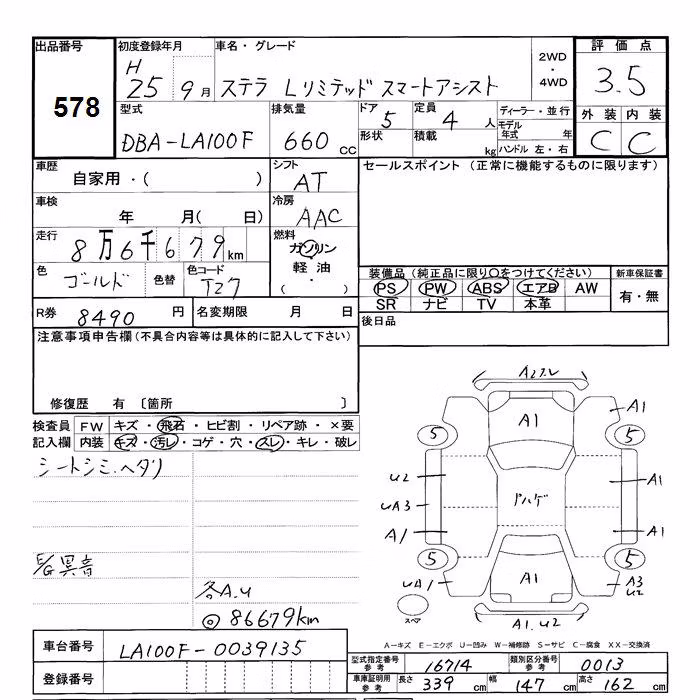 出品番号
578
初度登録年月
H
25 9月
車名・グレード
ステラ Lリミテッド スマートアシスト
2WD
・
4WD
評価点
3.5
型式
DBA-LA100F
排気量
660 CC
ドア 5
形状
定員 4 人
積載 kg
ディーラー・並行
モデル年式 年
ハンドル 左・右
外装 内装
C C
車歴
自家用・( )
シフト
AT
セールスポイント (正常に機能するものに限ります)
車検
年 月( 日)
冷房
AAC
走行
8万6千679km
燃料
ガソリン
軽油・
( )
色
ゴールド
色替
色コード
T27
装備品 (純正品に限り○をつけてください)
新車保証書
PS PW ABS エアB AW
SR ナビ TV 本革
有・無
R券
8490 円
名変期限 月 日
後日品
注意事項申告欄(不具合内容等は具体的に記入して下さい)
修復歴 有 〔箇所 〕
検査員 FW キズ・飛石・ヒビ割・リペア跡・×要
記入欄 内装 キズ・汚レ・コゲ・穴・スレ・キレ・破レ
シートシミ.ヘタリ
E/G異音
各A.U
◎ 86679km
A2スレ
A1
A1
5
5
U2
UA3
A1
パハゲ
A1
A1
5
5
UA1
A1
A3
U2
スペア
A1.U2
A−キズ E−エクボ U−凹み W−補修跡 S−サビ C−腐食 XX−交換済
車台番号
LA100F-0039135
登録番号
型式指定番号
参考
16714
類別区分番号
参考
0013
車庫証明用
参考
長さ 339 cm
幅 147 cm
高さ 162 cm